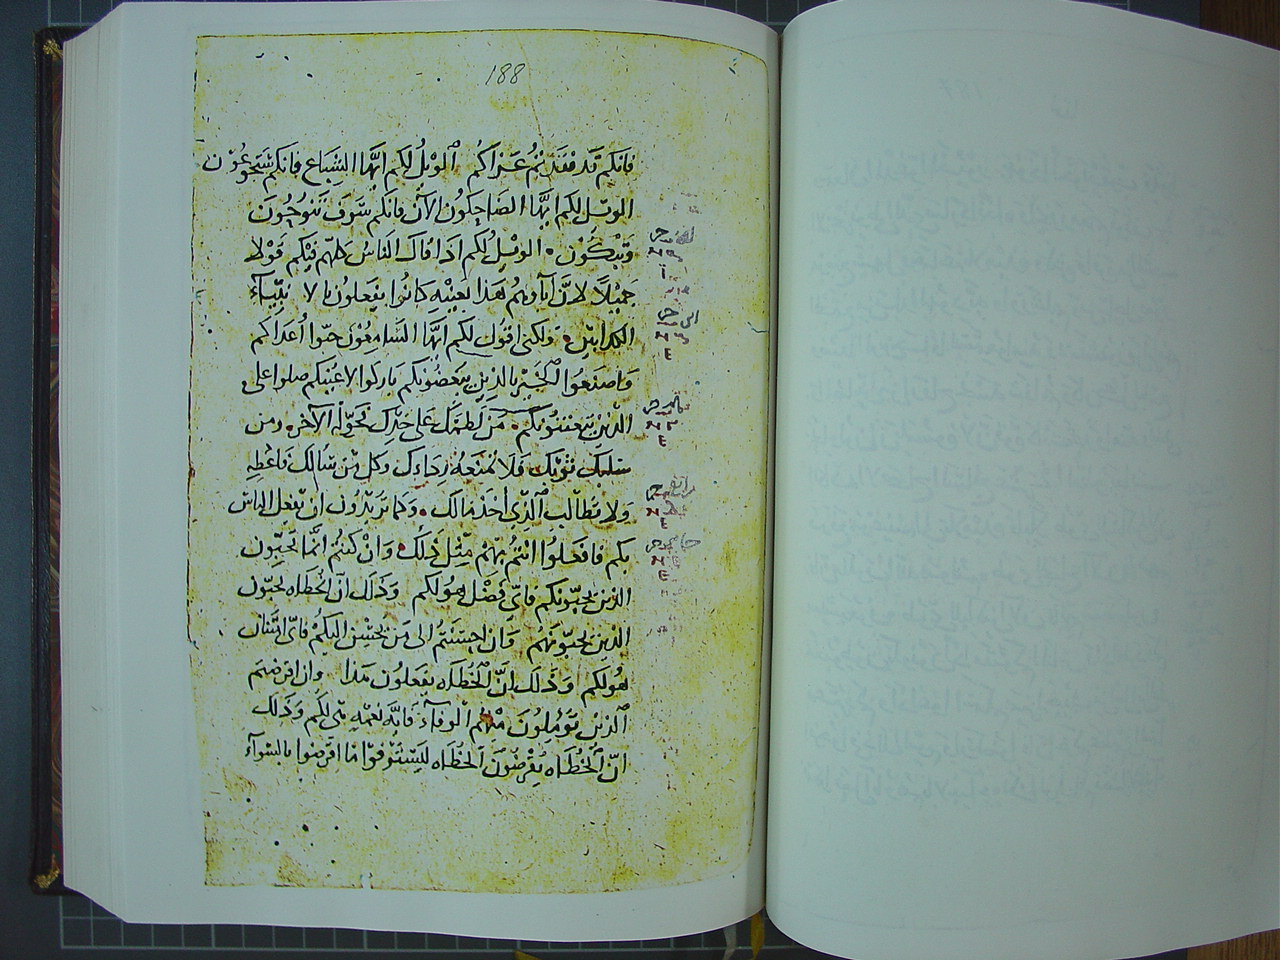 188
فانكم قد فقدتم عزاكم الويل لكم ايها الشباع فانكم ستجوعون
الويل لكم ايها الضاحكون الآن فانكم سوف تنوحون
وتبكون. الويل لكم اذا قال الناس كلهم فيكم قولا
جميلاً لان آباوهم هذا بعينه كانوا يفعلون بالانبياء
الكدابين. ولكنى اقول لكم ايها السامعون حبوا أعداكم
واصنعوا الخير بالذين يبغضونكم باركوا لاعنيكم صلوا على
الذين يعنتونكم. من لطمك على خدك فحوّل له الآخر. ومن
سلبك ثوبك فلا تمنعه رداءك وكل من سالك فاعطه
ولا تطالب الذى أخذ مالك. وكما تريدون ان يفعل الناس
بكم فافعلوا انتم بهم مثل ذلك. وان كنتم انما تحبون
الذين يحبونكم فاى فضل هو لكم وذلك ان الخطاه يحبون
الذين يحبونهم وان احسنتم الى من يحسن اليكم فاى امتنان
هو لكم وذلك ان الخطاه يفعلون هذا وان اقرضتم
الذين توملون منهم الوفاء فايه نعمه هى لكم وذلك
ان الخطاه يقرضون الخطاه ليستوفوا ما اقرضوا بالسواء